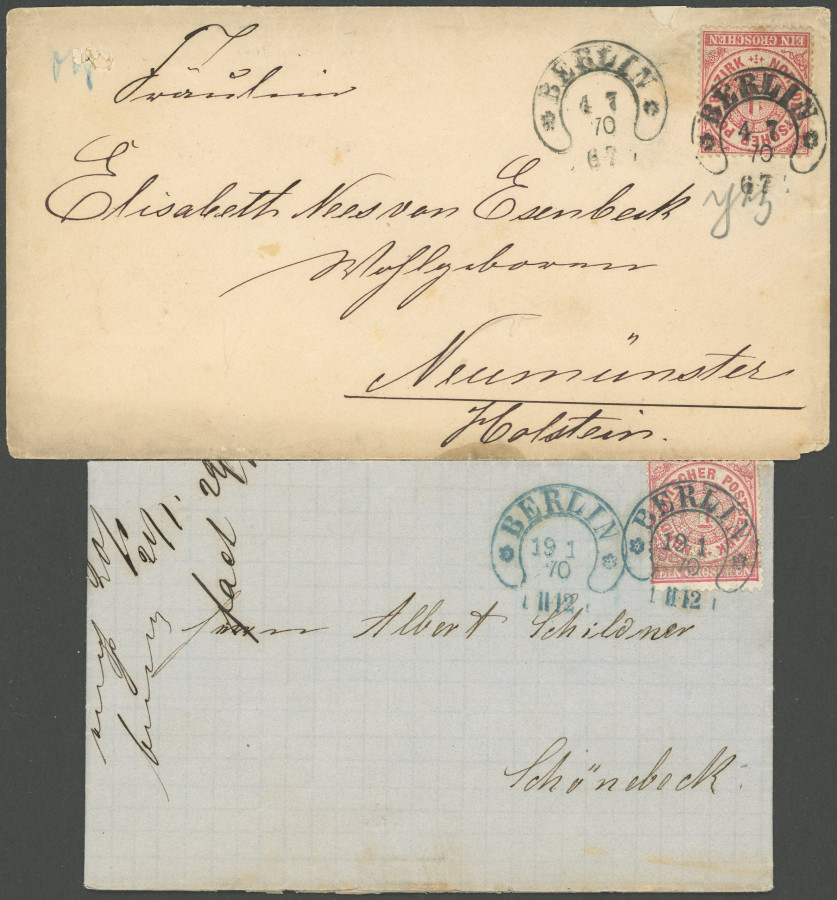 Fräulein
Elisabeth Nees von Esenbeck
Wohlgeboren
Neumünster
Holstein.
BERLIN
4 7
70
67
EIN GROSCHEN
BERLIN
4 7
70
67
BERLIN
19 1
70
11 12
BERLIN
19 1
70
11 12
EIN GROSCHEN
Herrn Albert Schildner
Schönebeck.